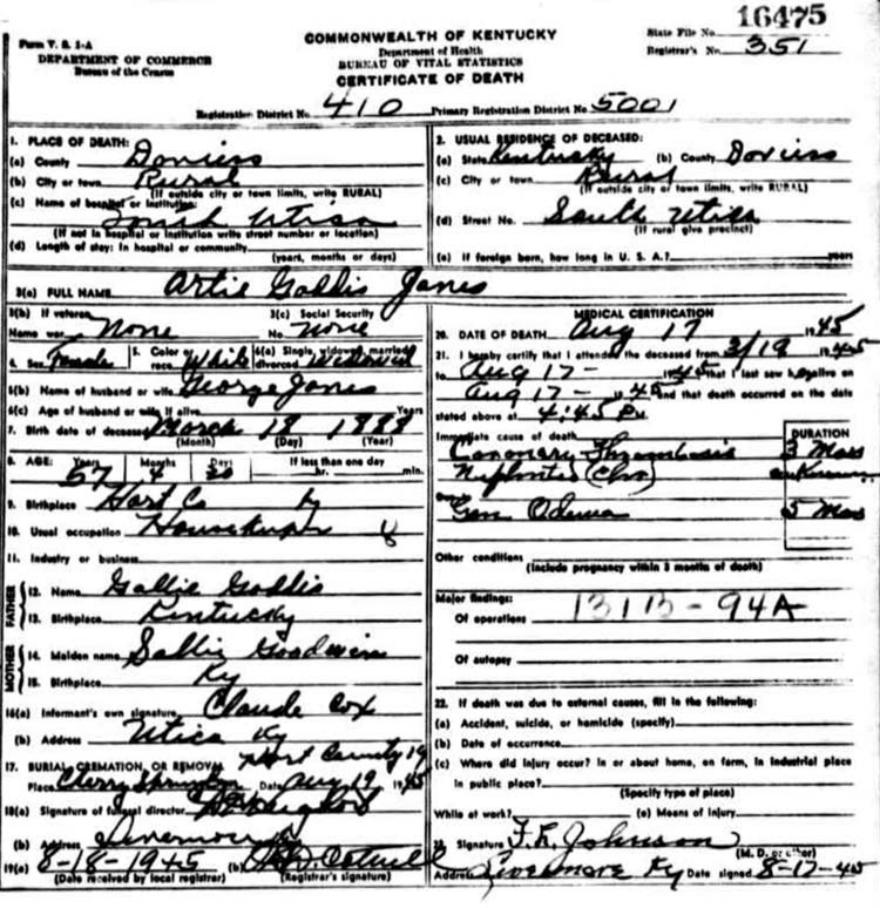 16475
Form V. S. 1-A
DEPARTMENT OF COMMERCE
Bureau of the Census
COMMONWEALTH OF KENTUCKY
Department of Health
BUREAU OF VITAL STATISTICS
CERTIFICATE OF DEATH
State File No.
Registrar's No. 351
Registration District No. 410 Primary Registration District No. 5001
1. PLACE OF DEATH:
(a) County Daviess
(b) City or town Rural
(If outside city or town limits, write RURAL)
(c) Name of hospital or institution:
South Utica
(If not in hospital or institution write street number or location)
(d) Length of stay: In hospital or community
(years, months or days)
2. USUAL RESIDENCE OF DECEASED:
(a) State Kentucky (b) County Daviess
(c) City or town Rural
(If outside city or town limits, write RURAL)
(d) Street No. South Utica
(If rural give precinct)
(e) If foreign born, how long in U. S. A.? years
3(a) FULL NAME Artie Gaddis Jones
3(b) If veteran 3(c) Social Security
Name war None No. None
4. Sex Female 5. Color or race White 6(a) Single, widowed, married, divorced Widowed
6(b) Name of husband or wife George Jones
6(c) Age of husband or wife if alive Years
7. Birth date of deceased March 18 1888
(Month) (Day) (Year)
8. AGE: Years Months Days If less than one day
57 4 30 hr. min.
9. Birthplace Hart Co Ky
10. Usual occupation Housekeeper 8
11. Industry or business
FATHER
12. Name Gallie Gaddis
13. Birthplace Kentucky
MOTHER
14. Maiden name Sallie Goodwin
15. Birthplace Ky
16(a) Informant's own signature Claude Cox
(b) Address Utica Ky
17. BURIAL, CREMATION, OR REMOVAL Hart County
Place Cherry Date Aug 19 1945
18(a) Signature of funeral director
(b) Address Livermore
19(a) 8-18-1945 (b)
(Date received by local registrar) (Registrar's signature)
MEDICAL CERTIFICATION
20. DATE OF DEATH Aug 17 1945
21. I hereby certify that I attended the deceased from 3/18 1945
to Aug 17 - 1945 that I last saw her alive on
Aug 17 - 1945 and that death occurred on the date
stated above at 4:45 P.M.
Immediate cause of death DURATION
Coronary Thrombosis 3 Mos
Nephritis (Chr) unknown
Due to
Gen Odema 5 Mos
Other conditions
(Include pregnancy within 3 months of death)
Major findings:
Of operations 131B - 94A
Of autopsy
22. If death was due to external causes, fill in the following:
(a) Accident, suicide, or homicide (specify)
(b) Date of occurrence
(c) Where did injury occur? in or about home, on farm, in industrial place
in public place?
(Specify type of place)
While at work? (e) Means of injury
23. Signature F. L. Johnson
(M. D. or other)
Address Livermore Ky Date signed 8-17-45